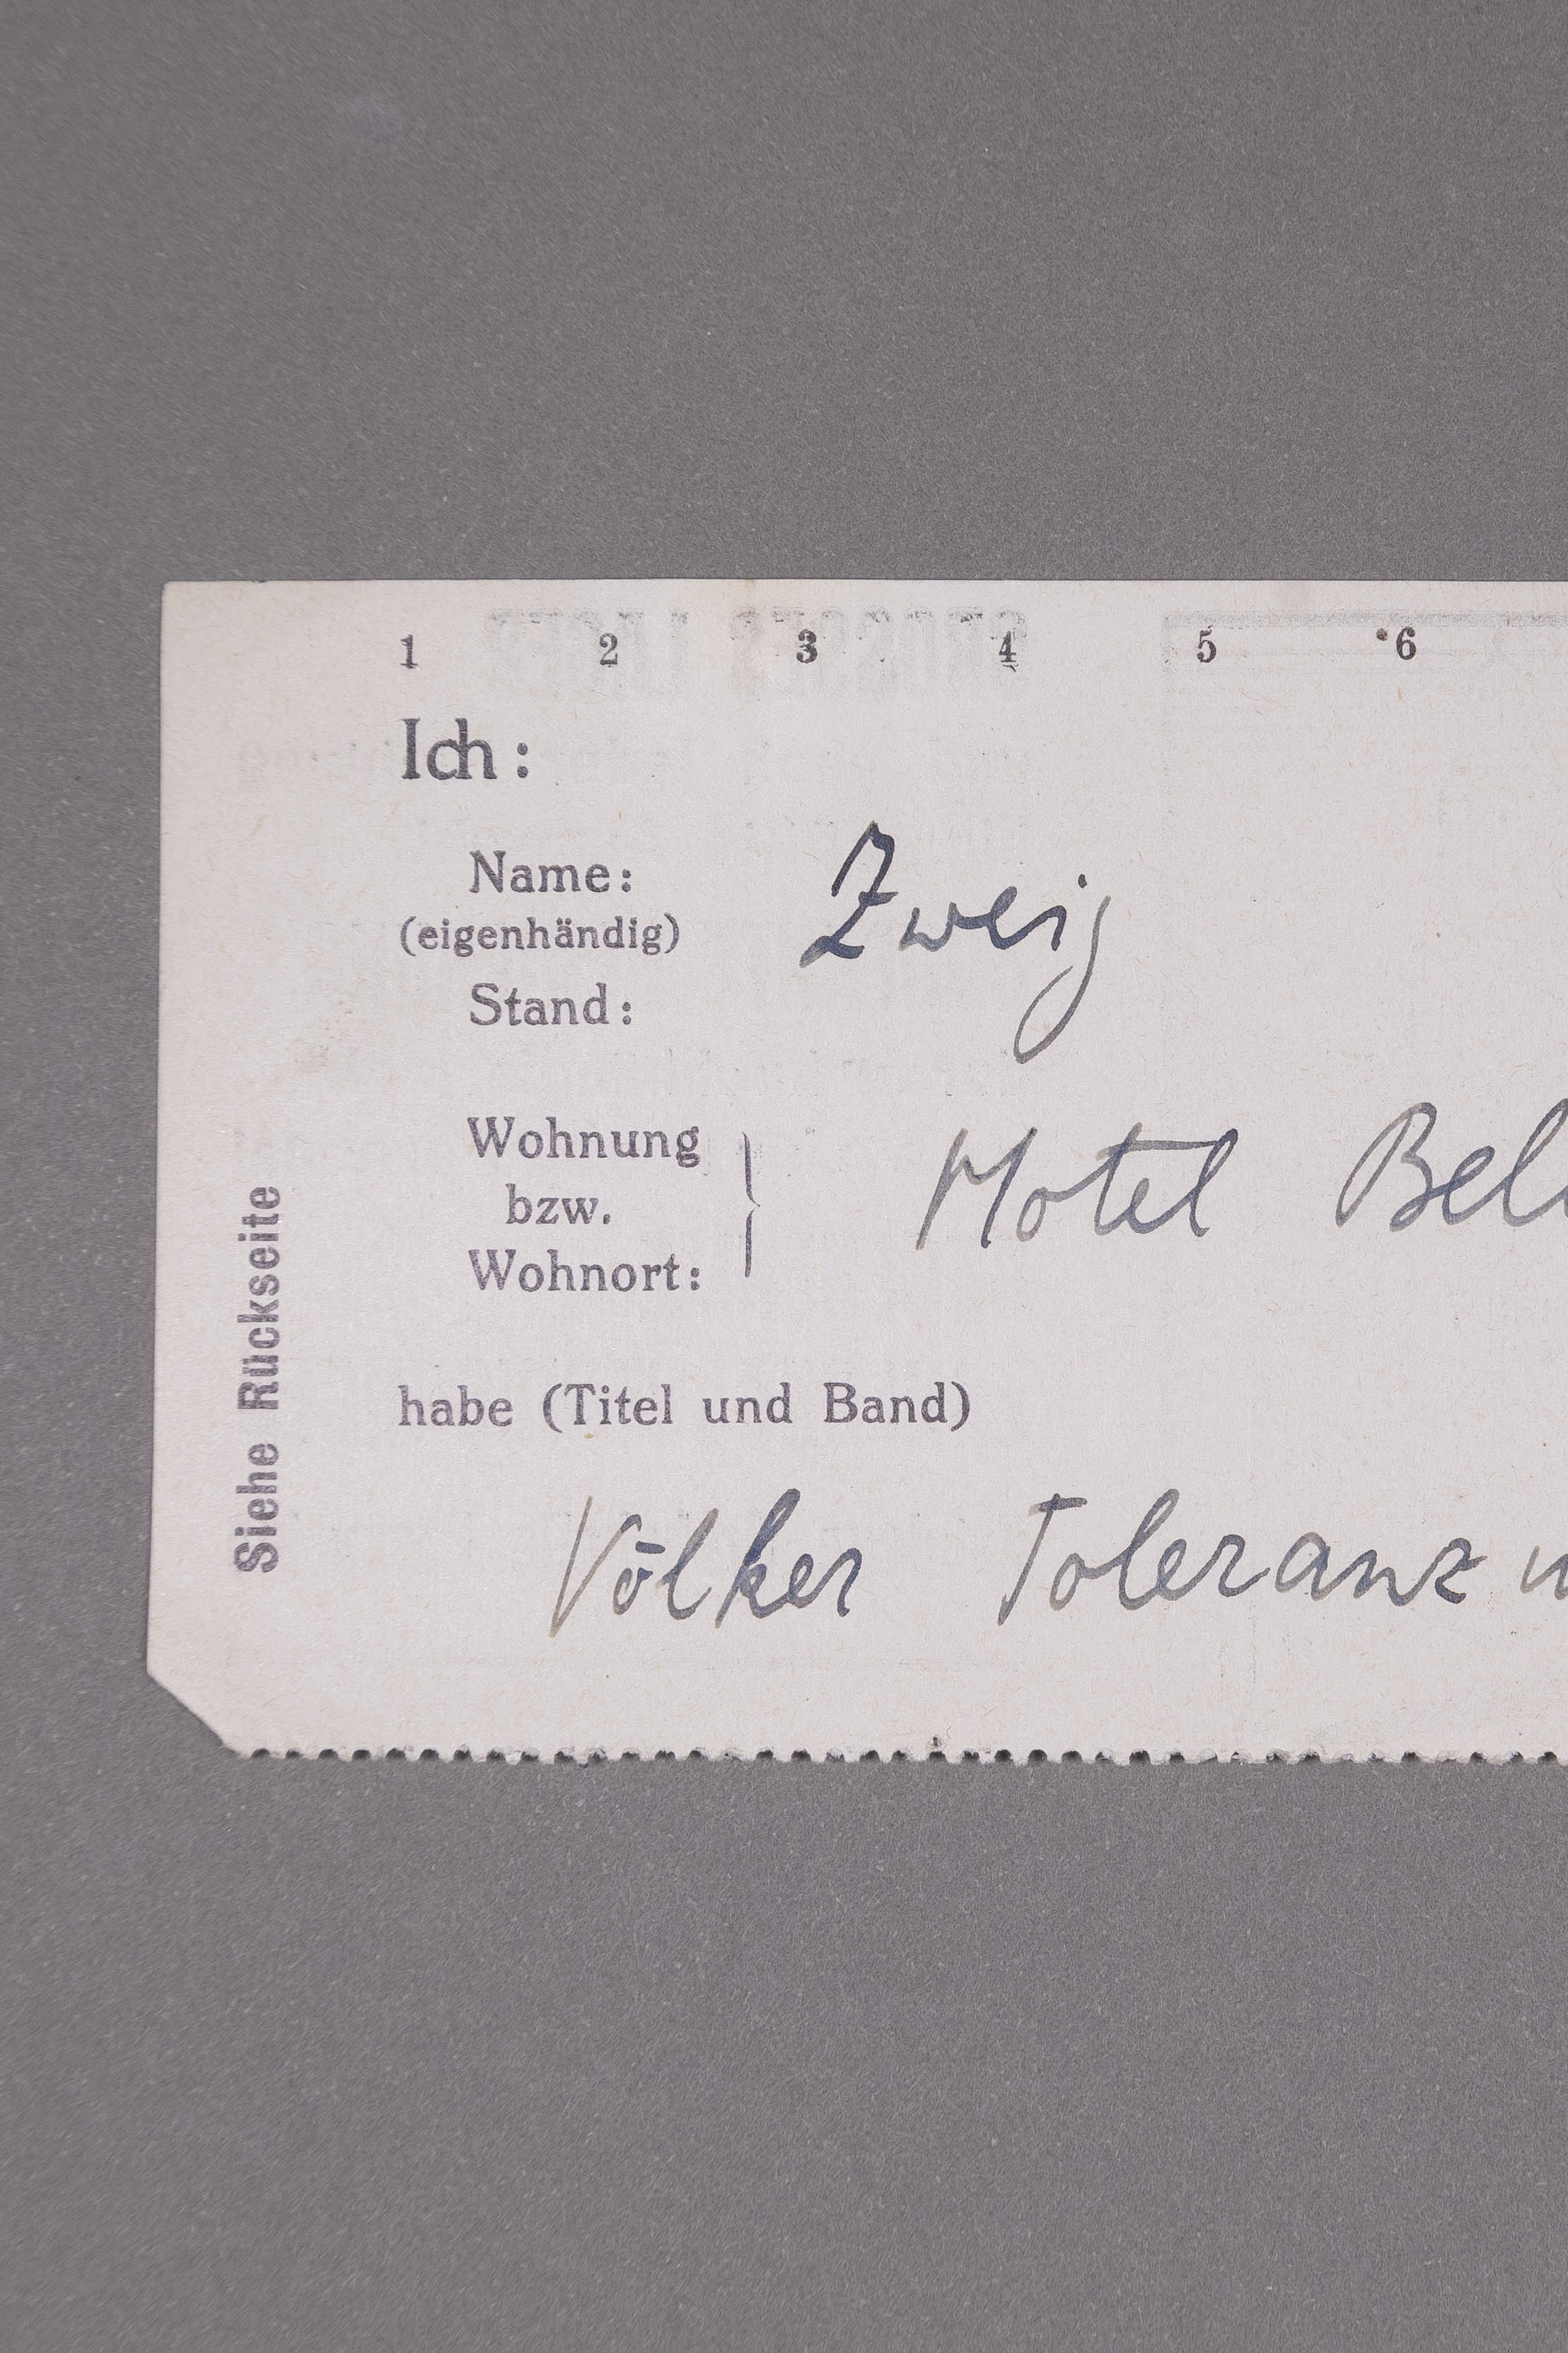 1 2 3 4 5 6
Ich:
Name: Zweig
(eigenhändig)
Stand:
Wohnung
bzw.
Wohnort:
Hotel Bel
habe (Titel und Band)
Völker Toleranz
Siehe Rückseite